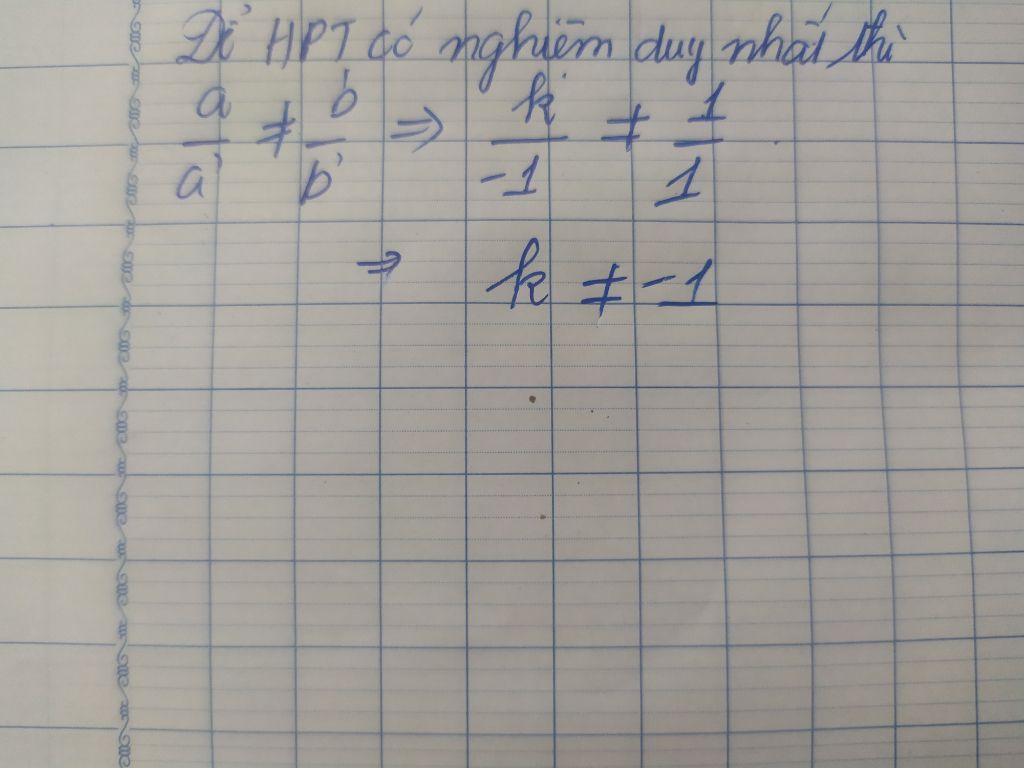 Để HPT có nghiệm duy nhất thì
a/a' ≠ b/b' => k/-1 ≠ 1/1
=> k ≠ -1